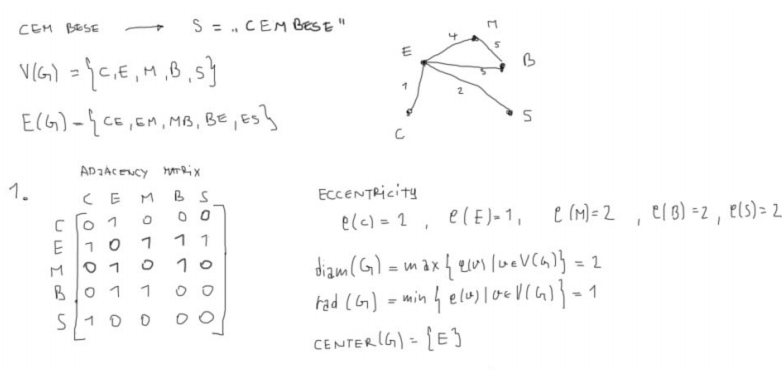 CEM BESE → S = „CEMBESE"
V(G) = {C,E,M,B,S}
E(G) = {CE,EM,MB,BE,ES}
M
4
5
E
B
3
1
2
S
C
1.
ADJACENCY MATRIX
C E M B S
C 0 1 0 0 0
E 1 0 1 1 1
M 0 1 0 1 0
B 0 1 1 0 0
S 1 0 0 0 0
ECCENTRICITY
e(C) = 2 , e(E)=1, e(M)=2 , e(B)=2, e(S)=2
diam(G) = max{e(v)|v∈V(G)} = 2
rad(G) = min{e(v)|v∈V(G)} = 1
CENTER(G) = {E}